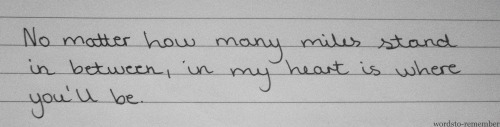 No matter how many miles stand
in between, in my heart is where
you'll be.
wordsto-remember